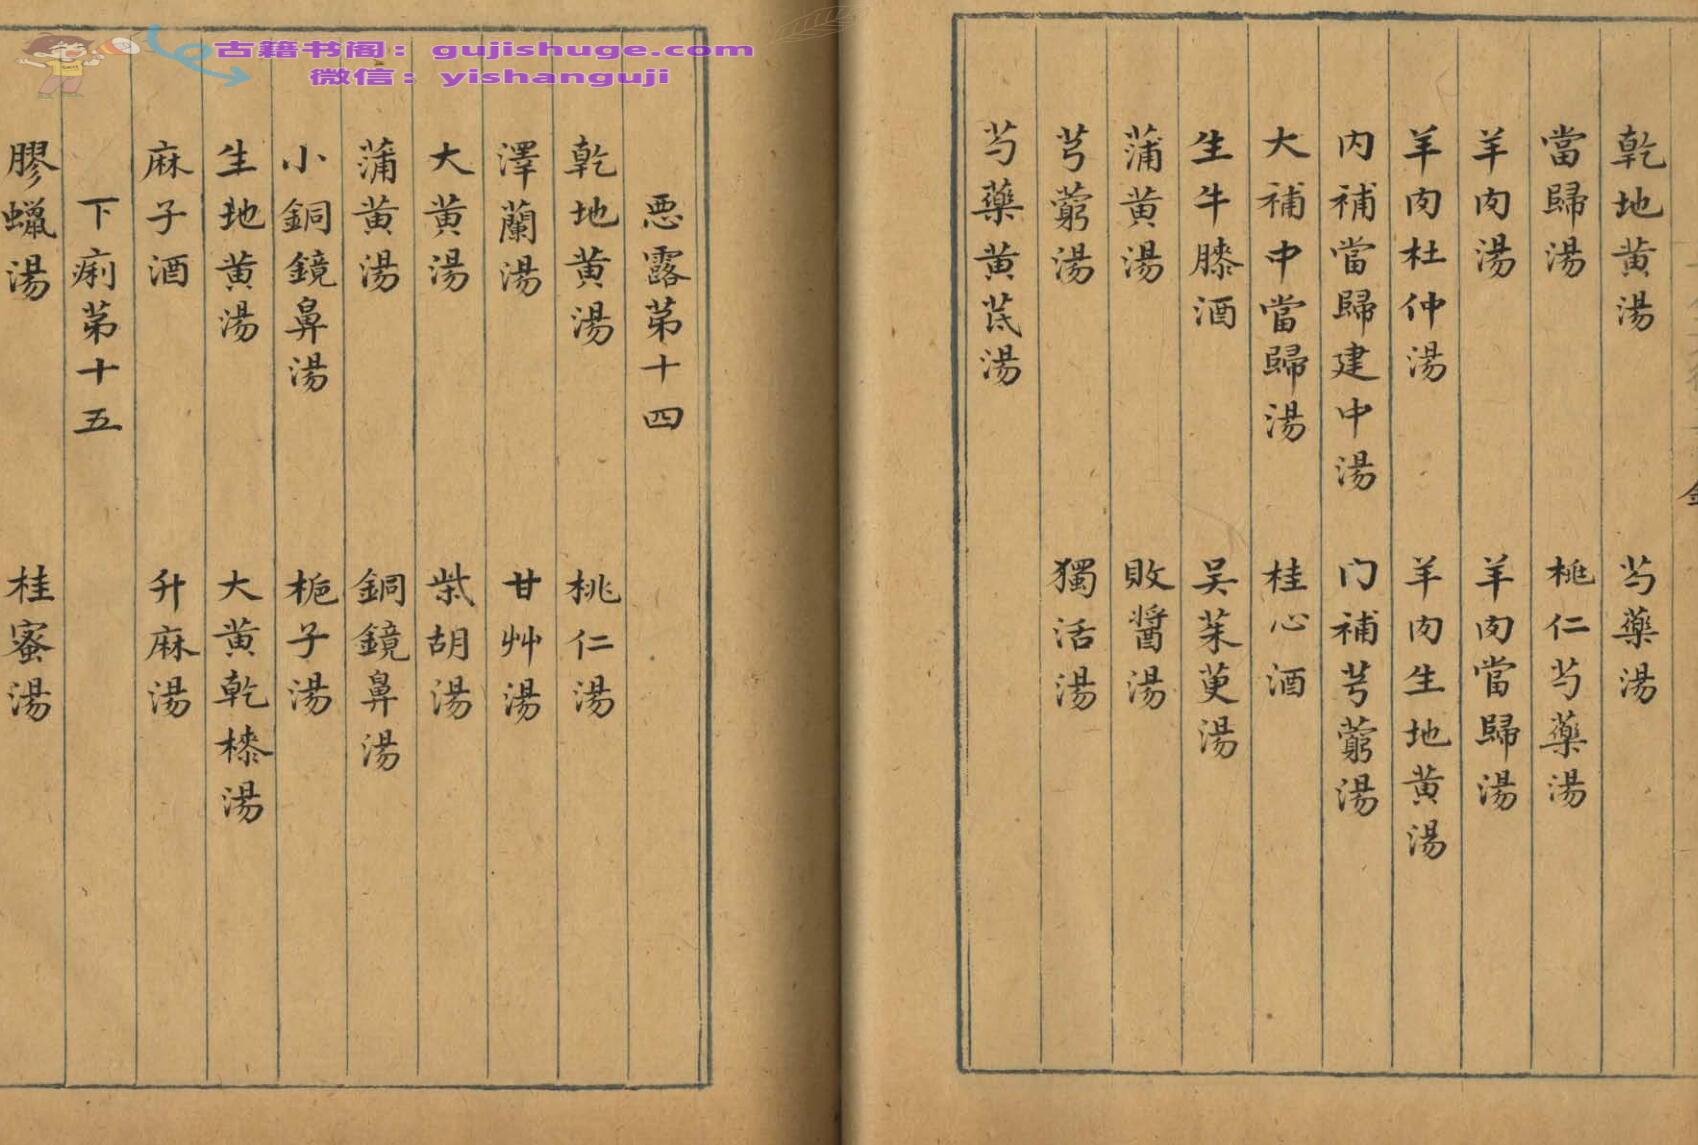 乾地黄湯 芍藥湯
當歸湯 桃仁芍藥湯
羊肉湯 羊肉當歸湯
羊肉杜仲湯 羊肉生地黄湯
内補當歸建中湯 门補芎藭湯
大補中當歸湯 桂心酒
生牛膝酒 吴茱萸湯
蒲黄湯 敗醬湯
芎藭湯 獨活湯
芍藥黄芪湯
惡露苐十四
乾地黄湯 桃仁湯
澤蘭湯 甘艸湯
大黄湯 柴胡湯
蒲黄湯 銅鏡鼻湯
小銅鏡鼻湯 梔子湯
生地黄湯 大黄乾榛湯
麻子酒 升麻湯
下痢苐十五
膠蠟湯 桂蜜湯
古籍书阁：gujishuge.com
微信：yishanguji